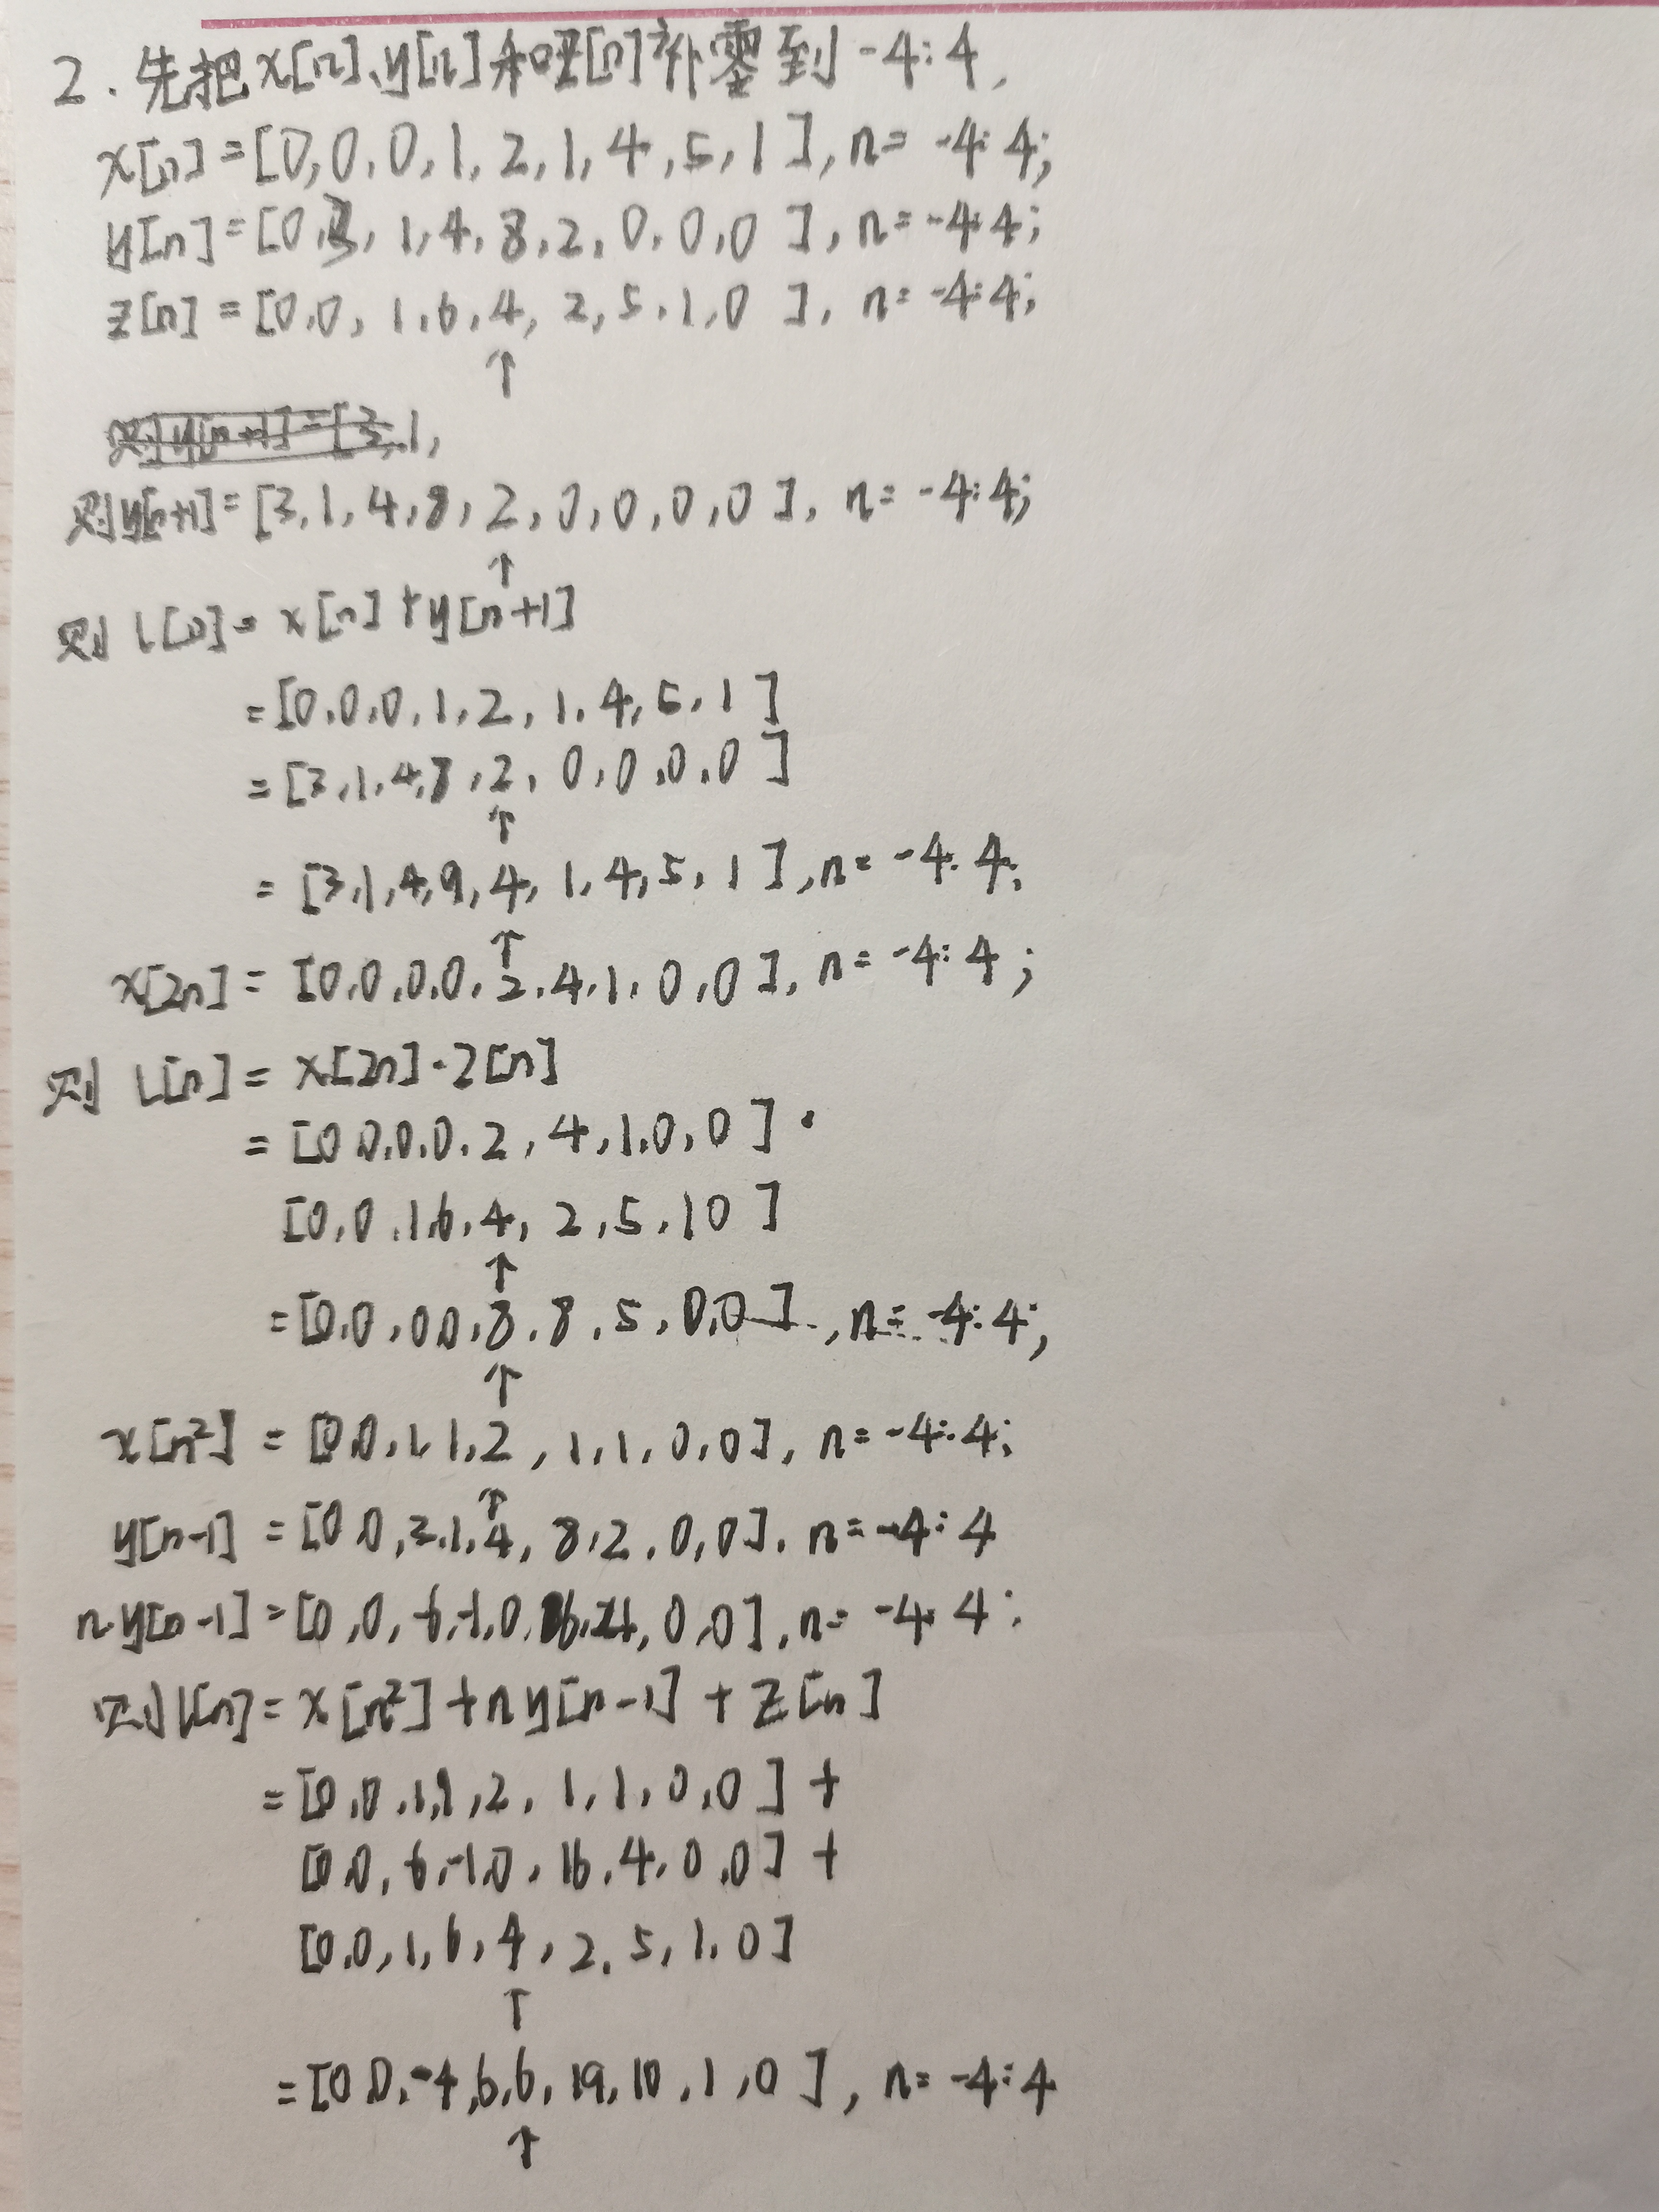 2.先把x[n]、y[n]和z[n]补零到-4:4,
x[n]=[0,0,0,1,2,1,4,5,1],n=-4:4;
y[n]=[0,3,1,4,8,2,0,0,0],n=-4:4;
z[n]=[0,0,1,6,4,2,5,1,0],n=-4:4;
↑
则y[n+1]=[3,1,
则y[n+1]=[3,1,4,8,2,0,0,0,0],n=-4:4;
↑
则 l[n]=x[n]+y[n+1]
=[0,0,0,1,2,1,4,5,1]
=[3,1,4,8,2,0,0,0,0]
↑
=[3,1,4,9,4,1,4,5,1],n=-4:4;
↑
x[2n]=[0,0,0,0,2,4,1,0,0],n=-4:4;
则 l[n]=x[2n]·z[n]
=[0 0,0,0,2,4,1,0,0]·
[0,0,1,6,4,2,5,1 0]
↑
=[0,0,0 0,8,8,5,0,0],n=-4:4;
↑
x[n²]=[0,0,1,1,2,1,1,0,0],n=-4:4;
↑
y[n-1]=[0 0,3,1,4,8,2,0,0],n=-4:4
n·y[n-1]=[0,0,-6,-1,0,16,4,0,0],n=-4:4;
则l[n]=x[n²]+ny[n-1]+z[n]
=[0,0,1,1,2,1,1,0,0]+
[0,0,-6,-1,0,16,4,0,0]+
[0,0,1,6,4,2,5,1,0]
↑
=[0 0,-4,6,6,19,10,1,0],n=-4:4
↑